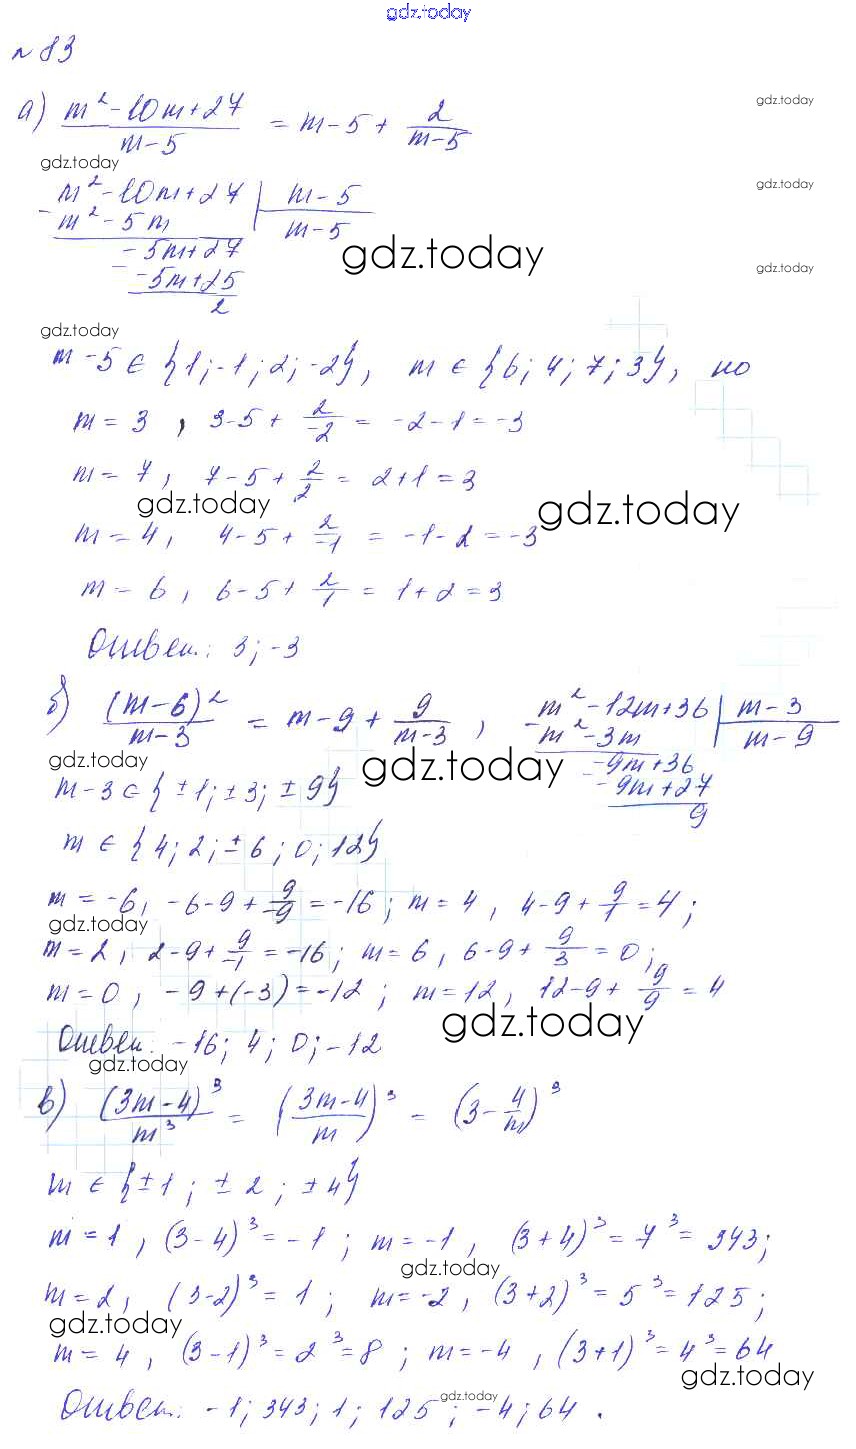 gdz.today
№ 83
а) (m² - 10m + 27)/(m - 5) = m - 5 + 2/(m - 5)
gdz.today
gdz.today
m² - 10m + 27 | m - 5
gdz.today
- m² - 5m | m - 5
- 5m + 27
gdz.today
- - 5m + 25
gdz.today
2
gdz.today
m - 5 ∈ {1; -1; 2; -2}, m ∈ {6; 4; 7; 3}, но
m = 3, 3 - 5 + 2/-2 = -2 - 1 = -3
m = 7, 7 - 5 + 2/2 = 2 + 1 = 3
gdz.today
gdz.today
m = 4, 4 - 5 + 2/-1 = -1 - 2 = -3
m = 6, 6 - 5 + 2/1 = 1 + 2 = 3
Ответ: 3; -3
б) (m - 6)²/(m - 3) = m - 9 + 9/(m - 3), m² - 12m + 36 | m - 3
- m² - 3m | m - 9
gdz.today
gdz.today
- 9m + 36
m - 3 ∈ {±1; ±3; ±9}
- - 9m + 27
9
m ∈ {4; 2; ±6; 0; 12}
m = -6, -6 - 9 + 9/-9 = -16; m = 4, 4 - 9 + 9/1 = 4;
gdz.today
m = 2, 2 - 9 + 9/-1 = -16; m = 6, 6 - 9 + 9/3 = 0;
m = 0, -9 + (-3) = -12; m = 12, 12 - 9 + 9/9 = 4
gdz.today
Ответ: -16; 4; 0; -12
gdz.today
в) (3m - 4)³/m³ = ((3m - 4)/m)³ = (3 - 4/m)³
m ∈ {±1; ±2; ±4}
m = 1, (3 - 4)³ = -1; m = -1, (3 + 4)³ = 7³ = 343;
gdz.today
m = 2, (3 - 2)³ = 1; m = -2, (3 + 2)³ = 5³ = 125;
gdz.today
m = 4, (3 - 1)³ = 2³ = 8; m = -4, (3 + 1)³ = 4³ = 64
gdz.today
gdz.today
Ответ: -1; 343; 1; 125; -4; 64.